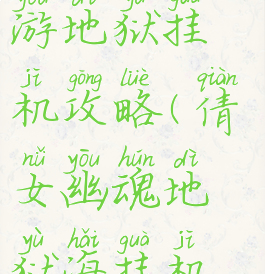 游地狱挂
jī gōng lüè qiàn
机攻略(倩
nǚ yōu hún dì
女幽魂地
yù hǎi guà jī
狱海挂机